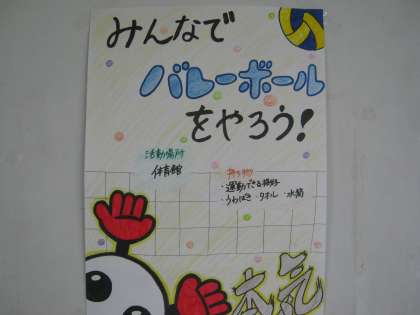 みんなで
バレーボール
をやろう!
活動場所
体育館
持ち物
・運動できる格好
・うわばき ・タオル ・水筒
本気